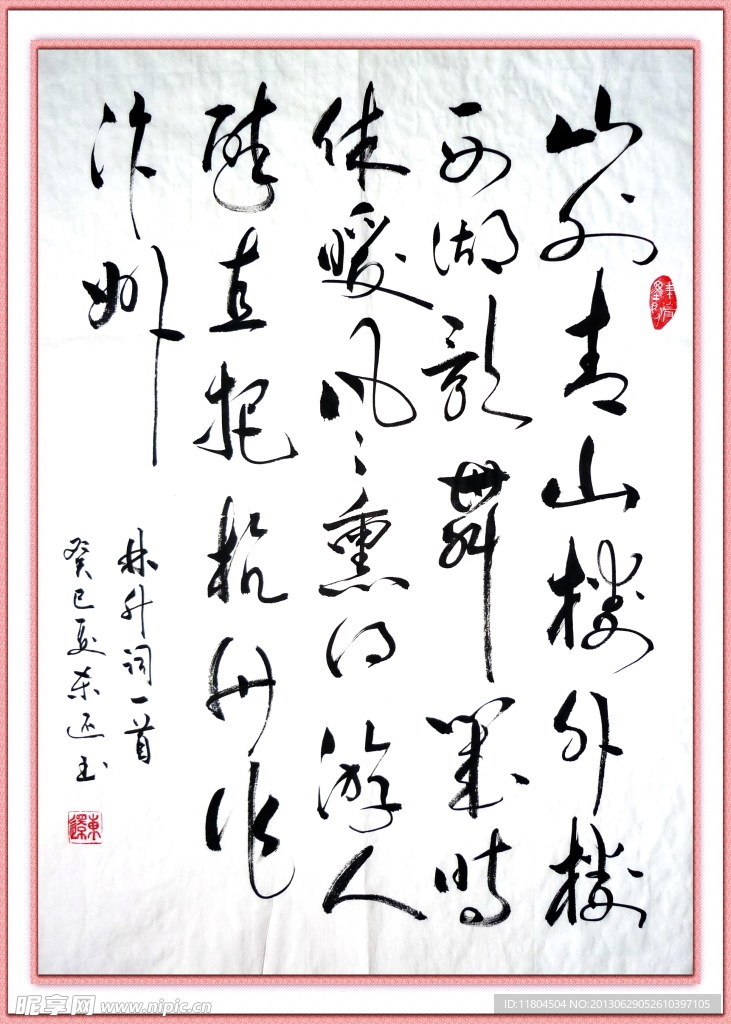 山外青山楼外楼
西湖歌舞幾時
休暖风々熏得游人
醉直把杭州作
汴州
林升词一首
癸巳夏东还书
昵享网 www.nipic.cn
ID:11804504 NO:20130629052610397105